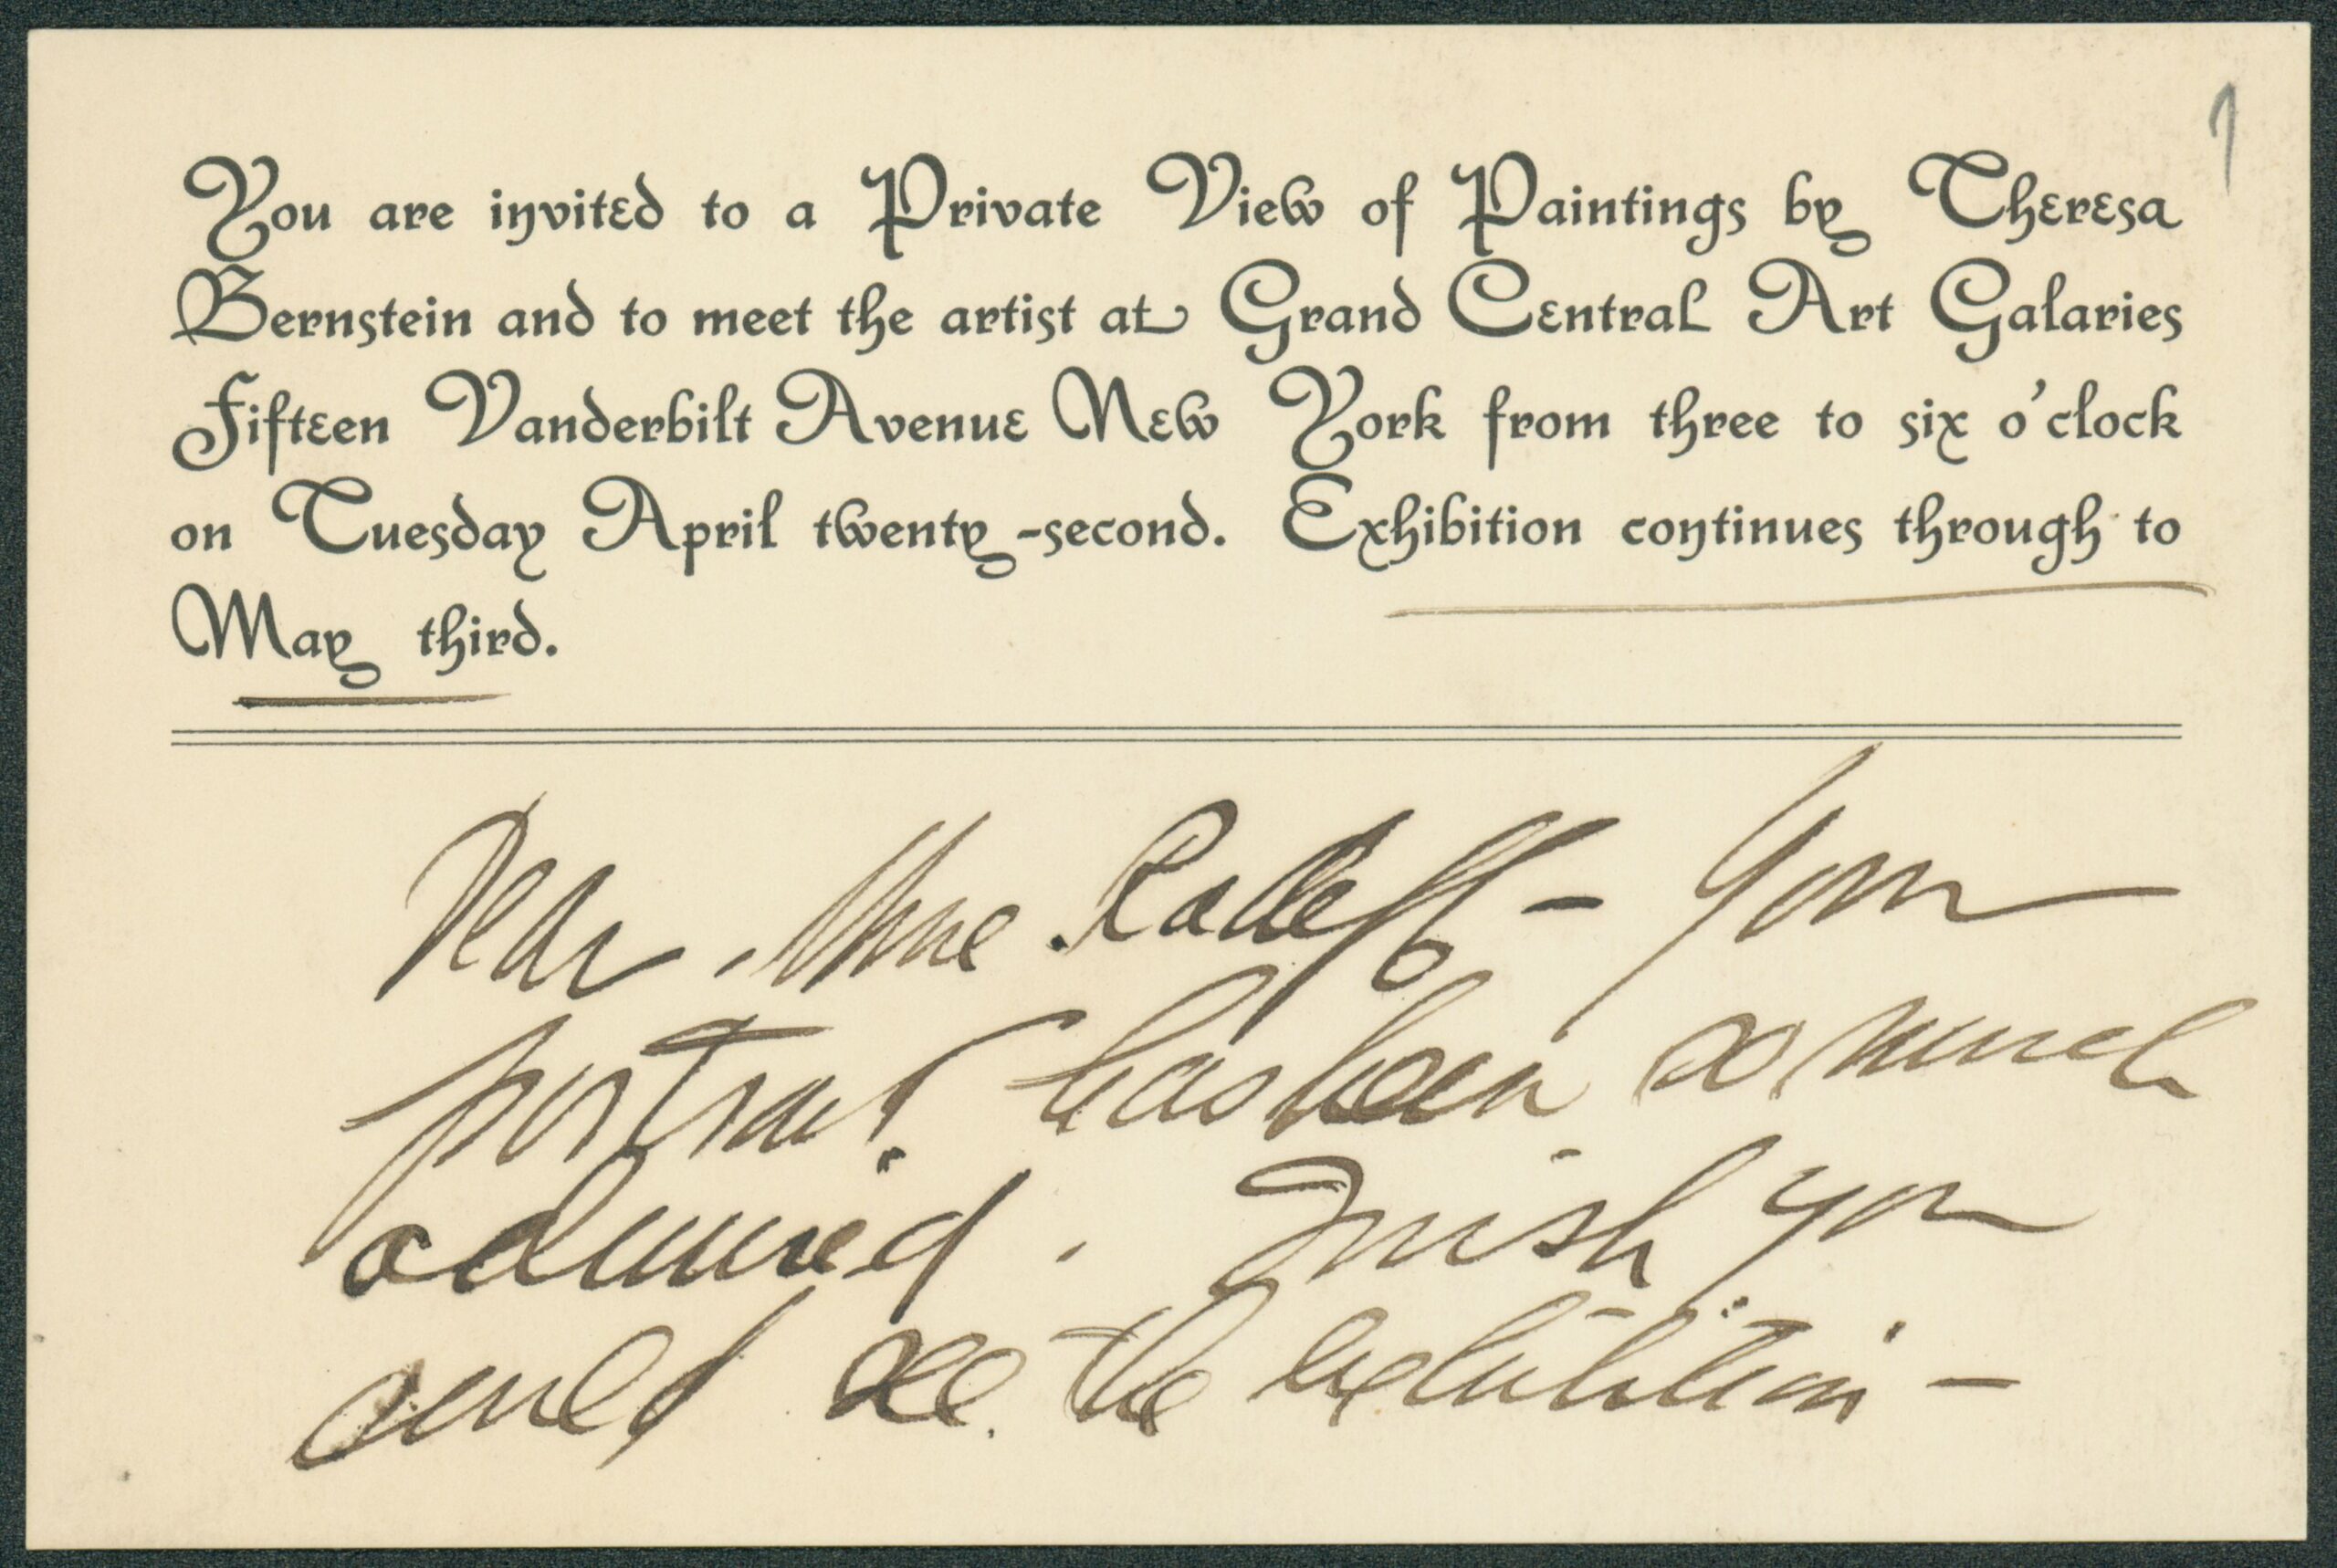 You are invited to a Private View of Paintings by Theresa
Bernstein and to meet the artist at Grand Central Art Galaries
Fifteen Vanderbilt Avenue New York from three to six o'clock
on Tuesday April twenty-second. Exhibition continues through to
May third.
Dear Mme Radeff - Your
portrait has been so much
admired. I wish you
could see the exhibition -